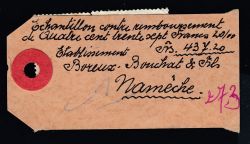 Echantillon contre remboursement
de Quatre cent trente sept Francs 20/00
Etablissement Fr. 437.20
Boreux-Bouchat & Fils
Namêche
273